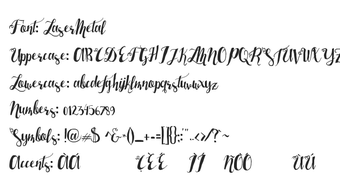 Font: LaserMetal
Uppercase: ABCDEFGHIJKLMNOPQRSTUVWXYZ
Lowercase: abcdefghijklmnopqrstuvwxyz
Numbers: 0123456789
Symbols: !@#$ ^&*()_+-=[]{};:¨..<>/?¨~
Accents: AA EEE II NOO UU